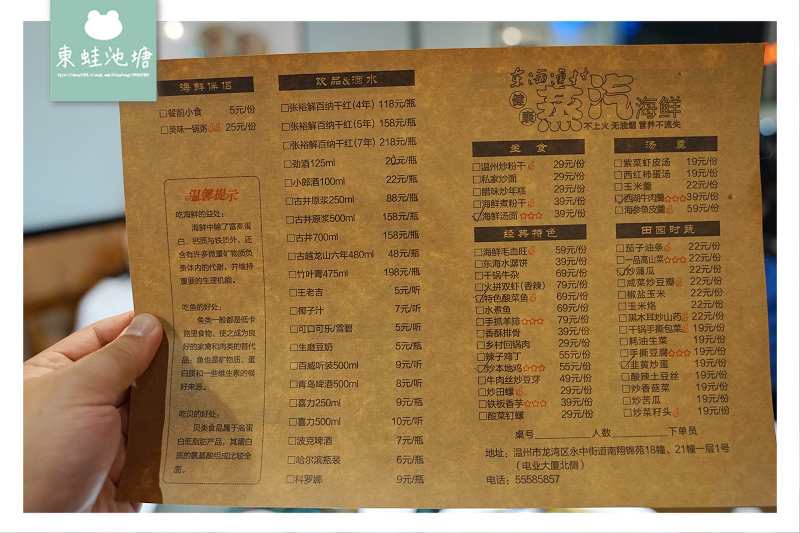 東蛙池塘
海鮮伴侣
□餐前小食 5元/份
□美味一锅粥 25元/份
温馨提示
吃海鲜的益处:
海鲜中除了富高蛋
白、钙质与铁质外,还
含有许多微量矿物质负
责体内的代谢,并维持
重要的生理机能。
吃鱼的好处:
鱼类一般都是低卡
路里食物,使之成为良
好的家禽和肉类的替代
品;鱼也是矿物质、蛋
白质和一些维生素的很
好来源。
吃贝的好处:
贝类食品属于高蛋
白低脂肪产品,其蛋白
质的氨基酸组成比较全
面。
饮品&酒水
□张裕解百纳干红(4年) 118元/瓶
□张裕解百纳干红(5年) 158元/瓶
□张裕解百纳干红(7年) 218元/瓶
□劲酒125ml 20元/瓶
□小郎酒100ml 22元/瓶
□古井原浆250ml 88元/瓶
□古井原浆500ml 158元/瓶
□古井700ml 158元/瓶
□古越龙山六年480ml 48元/瓶
□竹叶青475ml 198元/瓶
□王老吉 5元/听
□椰子汁 7元/听
□可口可乐/雪碧 5元/听
□生磨豆奶 5元/瓶
□百威听装500ml 9元/听
□青岛啤酒500ml 8元/听
□喜力250ml 9元/瓶
□喜力500ml 10元/听
□波克啤酒 7元/瓶
□哈尔滨瓶装 6元/瓶
□科罗娜 9元/瓶
东海渔村
健康
蒸汽海鲜
不上火 无油烟 营养不流失
主食
□温州炒粉干 29元/份
□私家炒面 29元/份
□腊味炒年糕 29元/份
□海鲜煮粉干 39元/份
□海鲜汤面☆☆☆ 39元/份
经典特色
□海鲜毛血旺 59元/份
□东海水潺饼 39元/份
□干锅牛杂 69元/份
□火拼双虾(香辣) 79元/份
□特色酸菜鱼 69元/份
□水煮鱼 69元/份
□手抓羊排☆☆☆ 79元/份
□香酥排骨 39元/份
□乡村回锅肉 29元/份
□辣子鸡丁 55元/份
□炒本地鸡☆☆☆ 55元/份
□牛肉丝炒豆芽 49元/份
□炒田螺 29元/份
□铁板香芋☆☆☆ 39元/份
□酸菜钉螺 29元/份
汤羹
□紫菜虾皮汤 19元/份
□西红柿蛋汤 19元/份
□玉米羹 22元/份
□西湖牛肉羹☆☆☆39元/份
□海参鱼皮羹 59元/份
田园时蔬
□茄子油条 22元/份
□一品高山菜☆☆☆ 22元/份
□炒蒲瓜 22元/份
□咸菜炒豆瓣 22元/份
□椒盐玉米 22元/份
□玉米烙 22元/份
□黑木耳炒山药 22元/份
□干锅手撕包菜 19元/份
□耗油生菜 19元/份
□手撕豆腐☆☆☆ 19元/份
□韭黄炒蛋 19元/份
□酸辣土豆丝 19元/份
□炒香菇菜 19元/份
□炒苦瓜 19元/份
□炒菜籽头 19元/份
桌号 人数 下单员
地址:温州市龙湾区永中街道南翔锦苑18幢、21幢一层1号
(电业大厦北侧)
电话:55585857